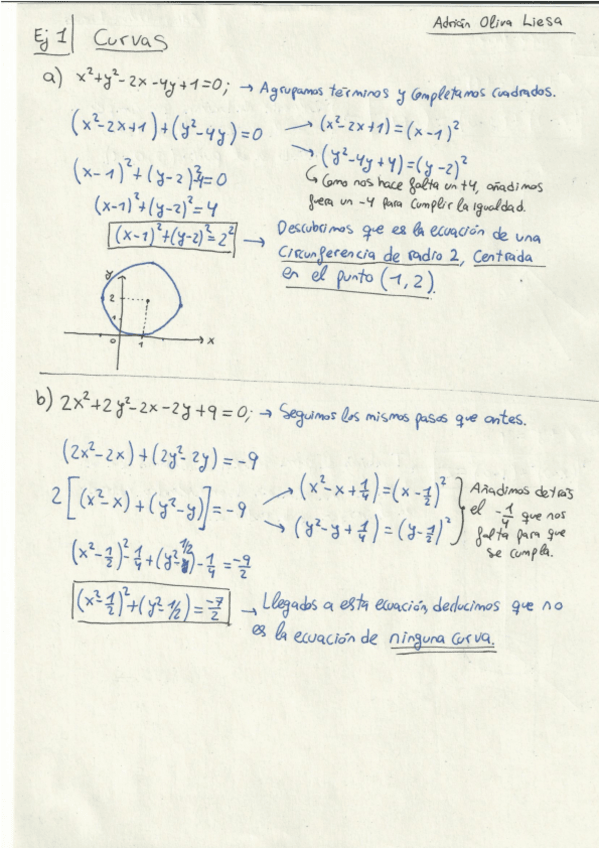 Adrián Oliva Liesa
Ej 1 Curvas
a) x²+y²-2x-4y+1=0; → Agrupamos términos y completamos cuadrados.
(x²-2x+1)+(y²-4y)=0 → (x²-2x+1)=(x-1)²
→ (y²-4y+4)=(y-2)²
(x-1)²+(y-2)²-4=0
↳ Como nos hace falta un +4, añadimos
fuera un -4 para cumplir la igualdad.
(x-1)²+(y-2)²=4
(x-1)²+(y-2)²=2² → Descubrimos que es la ecuación de una
circunferencia de radio 2, centrada
en el punto (1,2).
y
2
1
0 1 x
b) 2x²+2y²-2x-2y+9=0; → Seguimos los mismos pasos que antes.
(2x²-2x)+(2y²-2y)=-9
2[(x²-x)+(y²-y)]=-9 → (x²-x+1/4)=(x-1/2)²
→ (y²-y+1/4)=(y-1/2)²
Añadimos detrás
el -1/4 que nos
falta para que
se cumpla.
(x²-1/2)²-1/4+(y²-1/2)-1/4=-9/2
(x²-1/2)²+(y²-1/2)=-7/2 → Llegados a esta ecuación, deducimos que no
es la ecuación de ninguna curva.